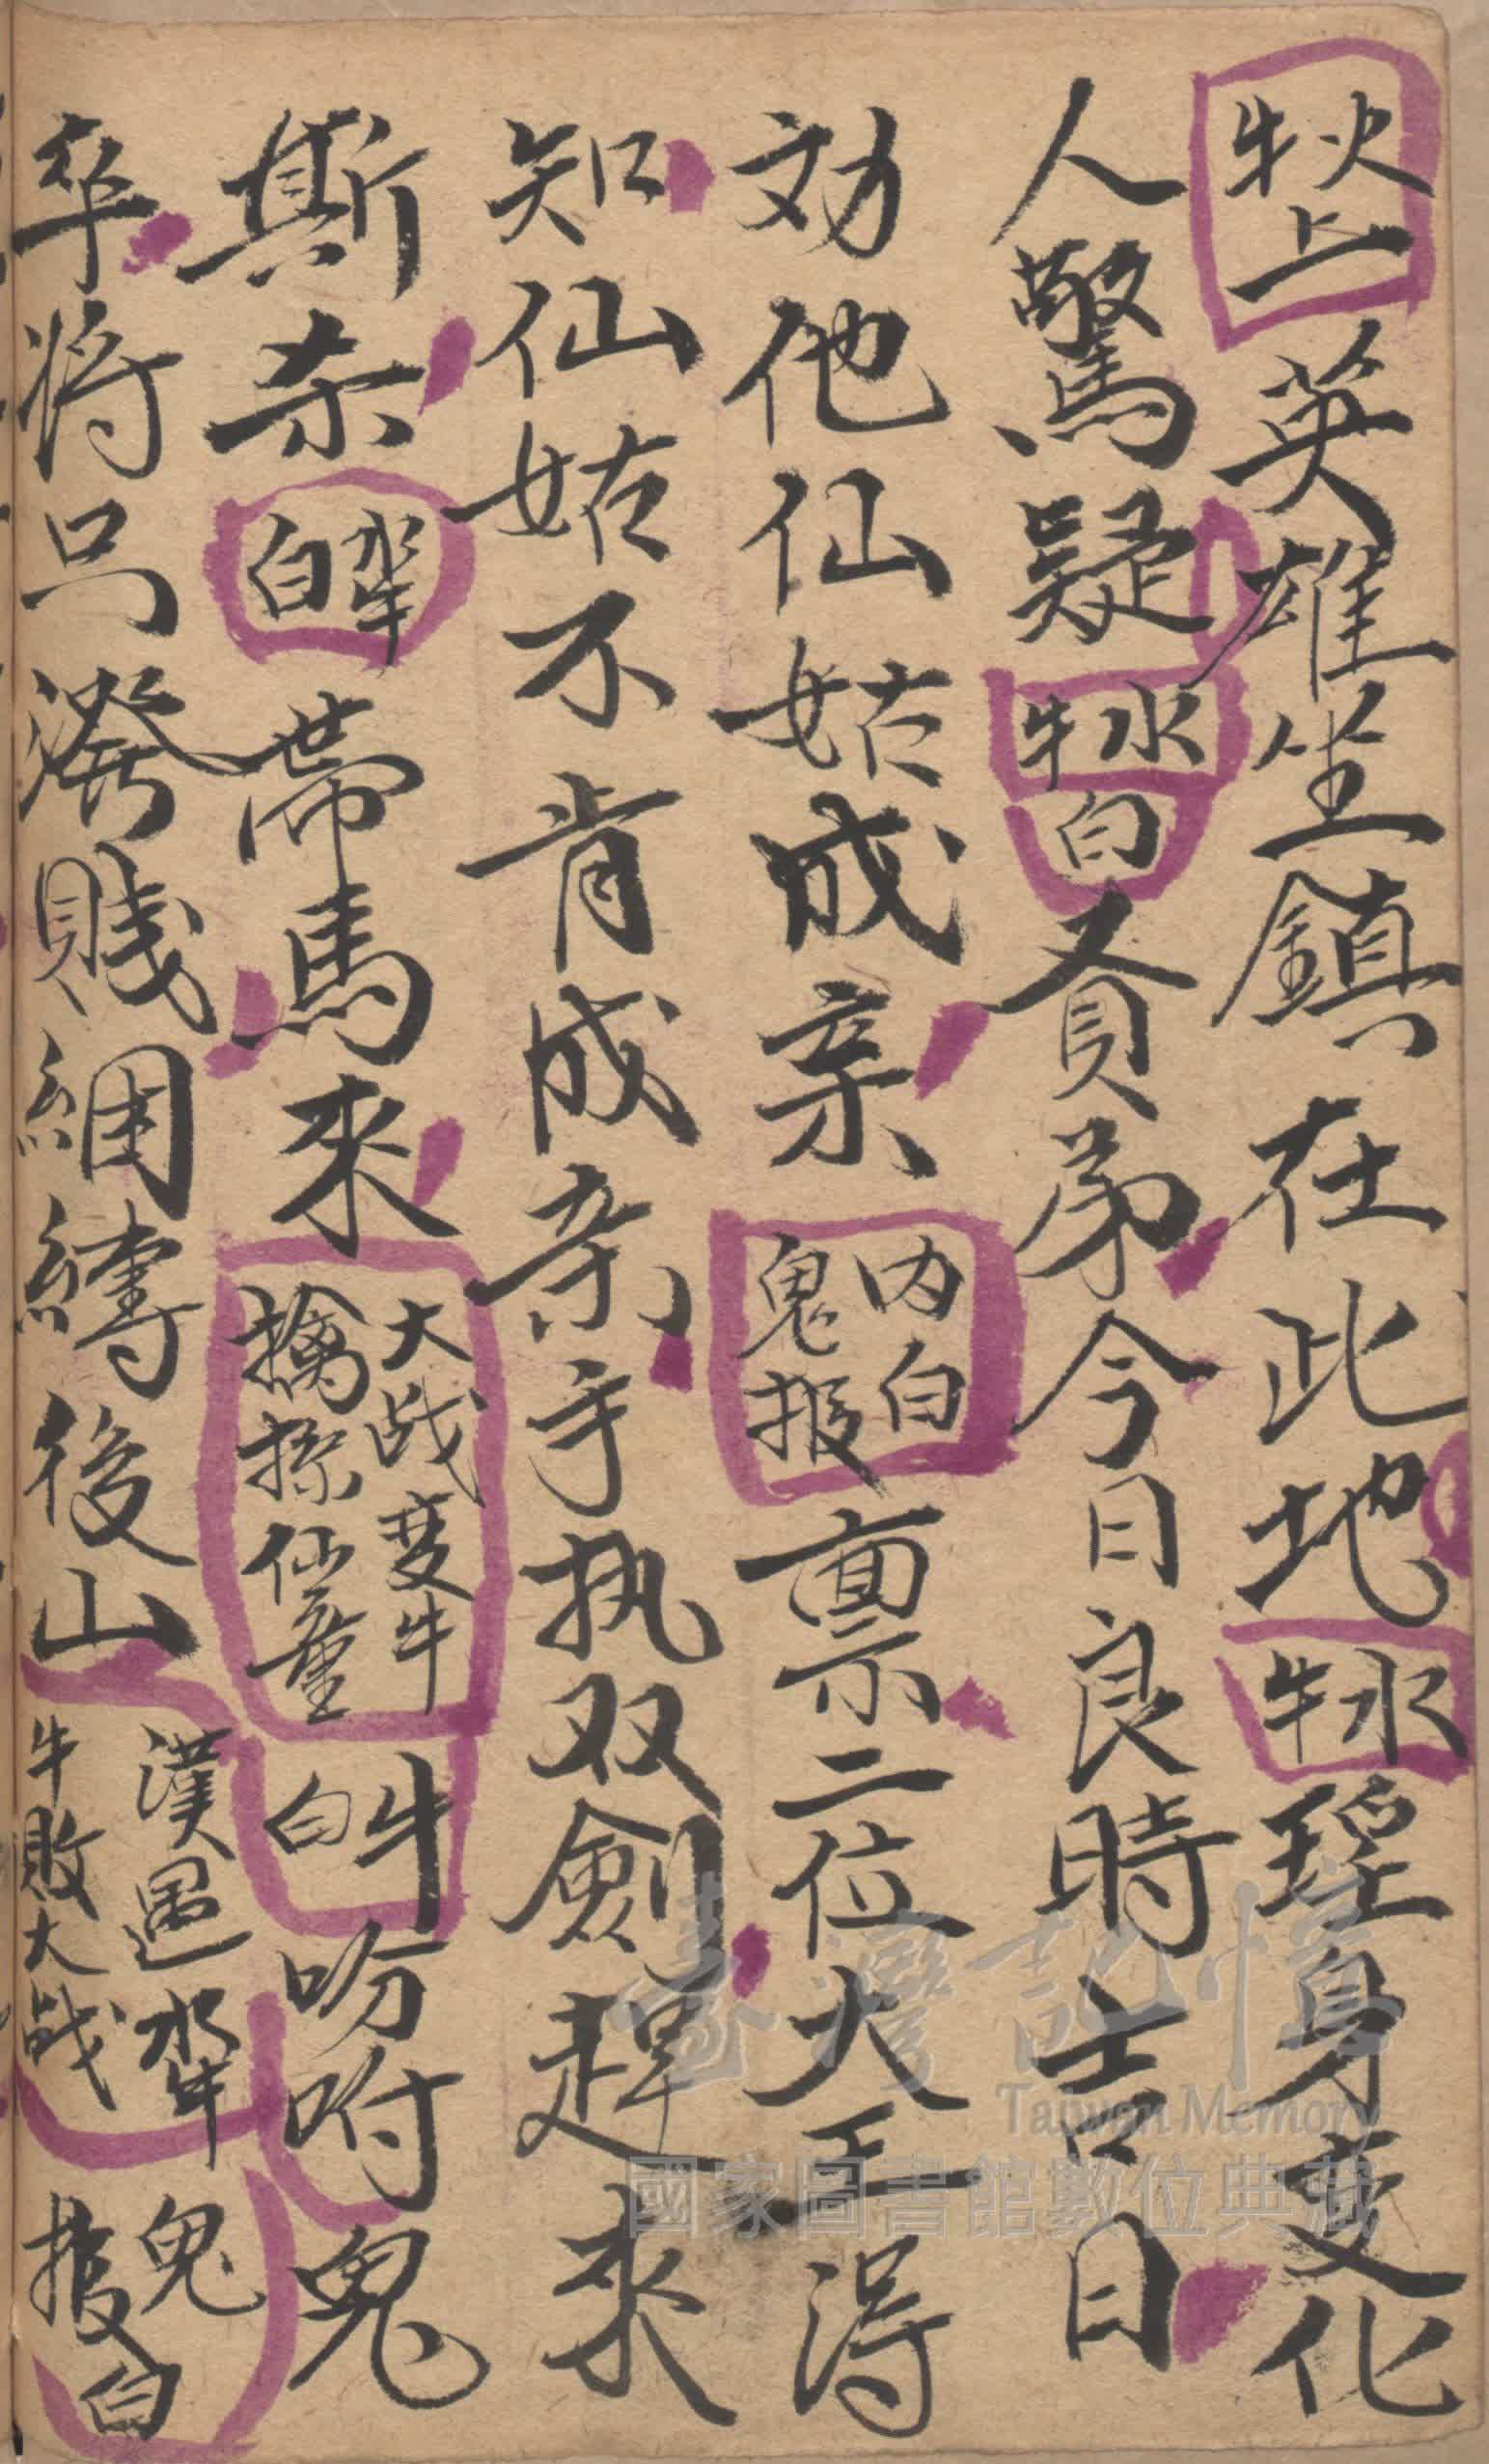 牛火上英雄坐鎮在此地牛水瑶身变化
人驚疑牛水白賢弟今日良時吉日
効他仙姑成亲内白鬼报禀二位大王得
知仙姑不肯成亲手执双劍赶来
斯杀水牛白帶馬來大战变牛擒捺仙童牛白吩咐鬼
卒将吕潑賤綑縛後山漢遇水牛牛敗大战鬼报白
臺灣記憶
Taiwan Memory
國家圖書館數位典藏